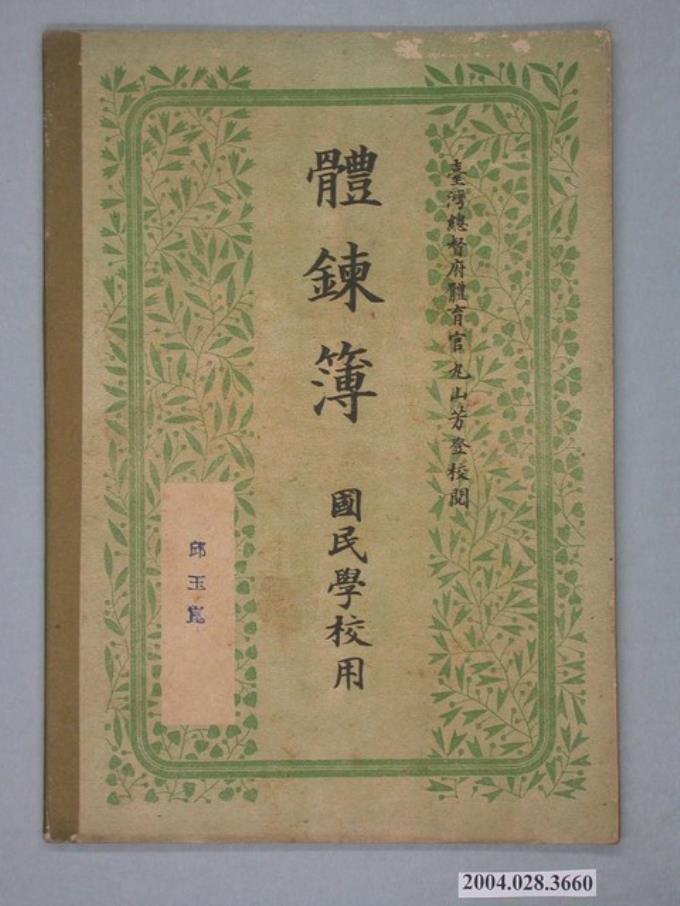 臺灣總督府體育官 丸山芳登校閱
體鍊簿 國民學校用
邱玉崑
2004.028.3660